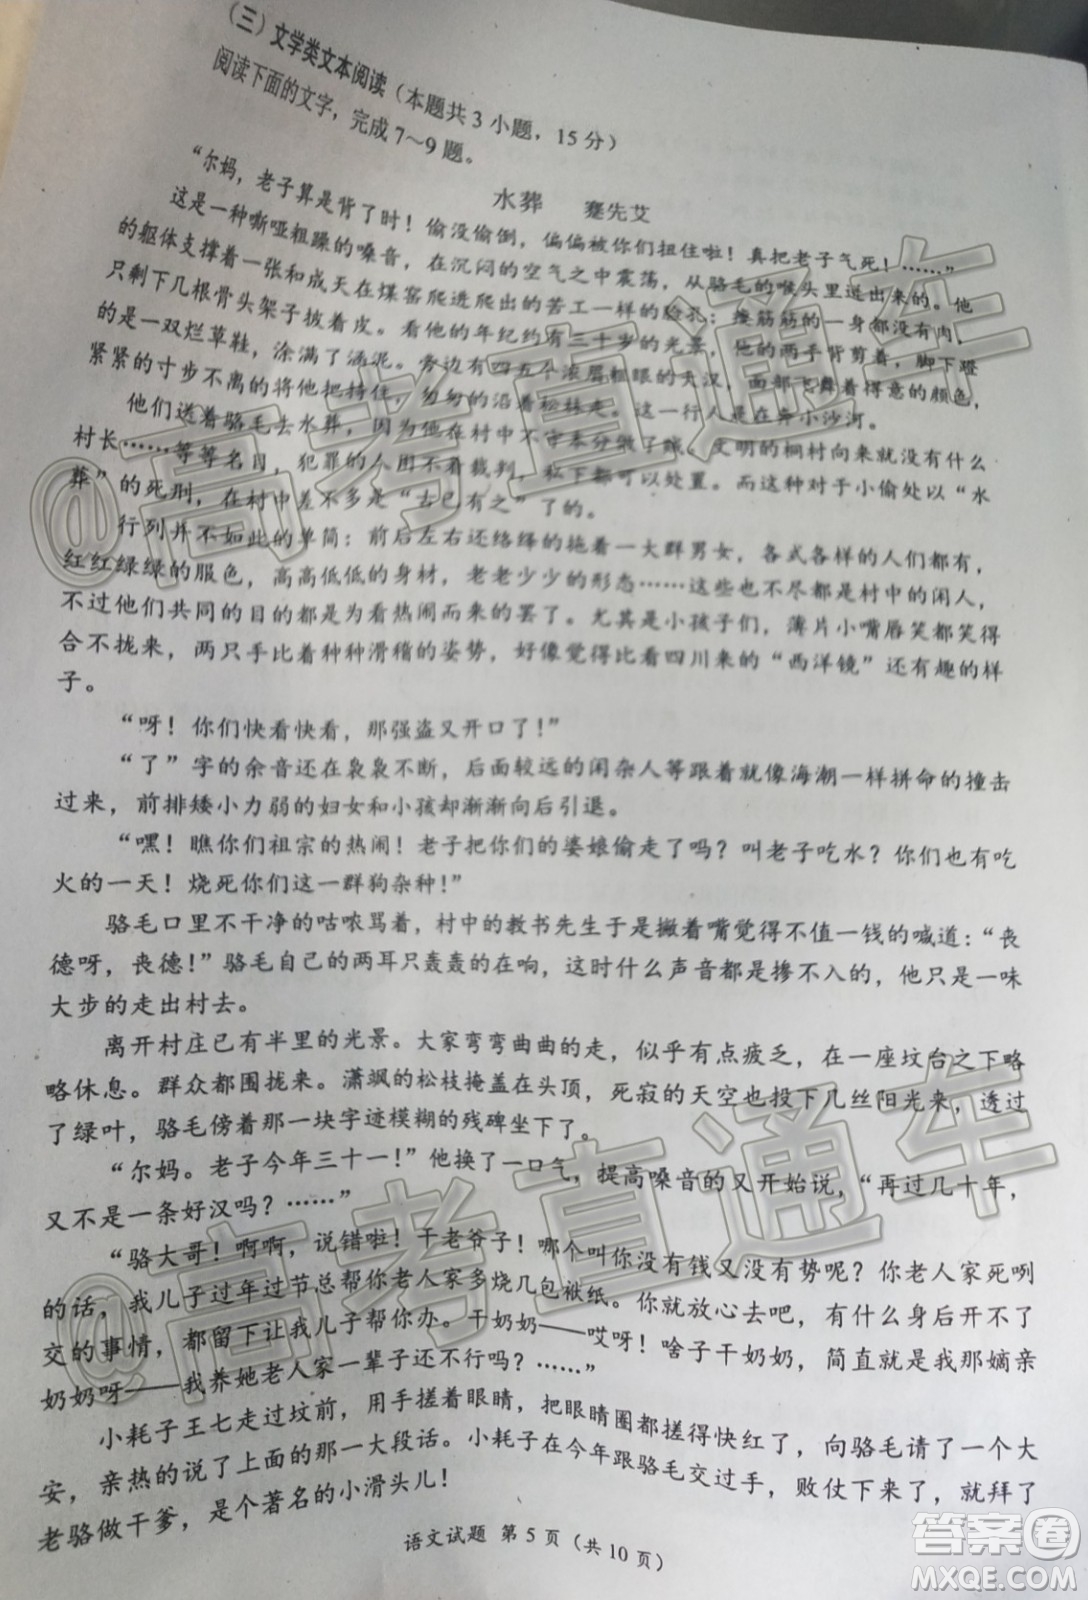 （三）文学类文本阅读（本题共3小题，15分）
阅读下面的文字，完成7～9题。
水葬 蹇先艾
“尔妈，老子算是背了时！偷没偷倒，偏偏被你们扭住啦！真把老子气死！……”
这是一种嘶哑粗躁的嗓音，在沉闷的空气之中震荡，从骆毛的喉头里迸出来的。他
的躯体支撑着一张和成天在煤窑爬进爬出的苦工一样的脸孔；瘦筋筋的一身都没有肉，
只剩下几根骨头架子披着皮。看他的年纪约有三十岁的光景，他的两手背剪着，脚下蹬
的是一双烂草鞋，涂满了涵泥。旁边有四五个浓眉粗眼的大汉，面部飞舞着得意的颜色，
紧紧的寸步不离的将他把持住，匆匆的沿着松林走。这一行人是在奔小沙河。
他们送着骆毛去水葬，因为他在村中不守本分做了贼。文明的桐村向来就没有什么
村长……等等名目，犯罪的人用不着裁判，私下都可以处置。而这种对于小偷处以“水
葬”的死刑，在村中差不多是“古已有之”了的。
行列并不如此的单简：前后左右还络绎的拖着一大群男女，各式各样的人们都有，
红红绿绿的服色，高高低低的身材，老老少少的形态……这些也不尽都是村中的闲人，
不过他们共同的目的都是为看热闹而来的罢了。尤其是小孩子们，薄片小嘴唇笑都笑得
合不拢来，两只手比着种种滑稽的姿势，好像觉得比看四川来的“西洋镜”还有趣的样
子。
“呀！你们快看快看，那强盗又开口了！”
“了”字的余音还在袅袅不断，后面较远的闲杂人等跟着就像海潮一样拼命的撞击
过来，前排矮小力弱的妇女和小孩却渐渐向后引退。
“嘿！瞧你们祖宗的热闹！老子把你们的婆娘偷走了吗？叫老子吃水？你们也有吃
火的一天！烧死你们这一群狗杂种！”
骆毛口里不干净的咕哝骂着，村中的教书先生于是撇着嘴觉得不值一钱的喊道：“丧
德呀，丧德！”骆毛自己的两耳只轰轰的在响，这时什么声音都是掺不入的，他只是一味
大步的走出村去。
离开村庄已有半里的光景。大家弯弯曲曲的走，似乎有点疲乏，在一座坟台之下略
略休息。群众都围拢来。潇飒的松枝掩盖在头顶，死寂的天空也投下几丝阳光来，透过
了绿叶，骆毛傍着那一块字迹模糊的残碑坐下了。
“尔妈。老子今年三十一！”他换了一口气，提高嗓音的又开始说，“再过几十年，
又不是一条好汉吗？……”
“骆大哥！啊啊，说错啦！干老爷子！哪个叫你没有钱又没有势呢？你老人家死咧
的话，我儿子过年过节总帮你老人家多烧几包袱纸。你就放心去吧，有什么身后开不了
交的事情，都留下让我儿子帮你办。干奶奶——哎呀！啥子干奶奶，简直就是我那嫡亲
奶奶呀——我养她老人家一辈子还不行吗？……”
小耗子王七走过坟前，用手搓着眼睛，把眼睛圈都搓得快红了，向骆毛请了一个大
安，亲热的说了上面的那一大段话。小耗子在今年跟骆毛交过手，败仗下来了，就拜了
老骆做干爹，是个著名的小滑头儿！
语文试题 第5页（共10页）
@高考直通车
@高考直通车
答案圈
MXQE.COM